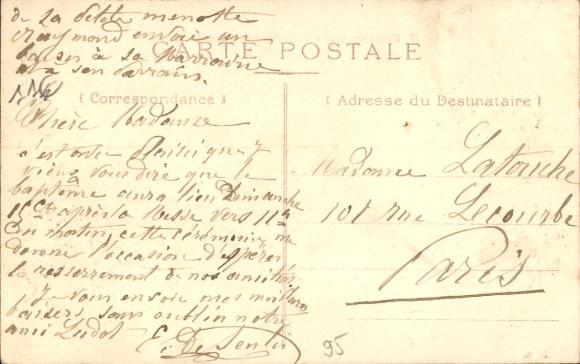 de sa petite menotte
Raymond envoie un
baiser à sa Marraine
et à son Parrain.
CARTE POSTALE
(Correspondance)
Chère Madame
c'est avec plaisir que je
viens vous dire que le
baptême aura lieu Dimanche
15 Ct après la Messe vers 11 h
du matin, cette cérémonie me
donne l'occasion d'espérer
le resserrement de nos amitiés
Je vous envoie mes meilleurs
baisers sans oublier notre
ami Ludot E. De
(Adresse du Destinataire)
Madame Latouche
101 rue Lecourbe
Paris
95